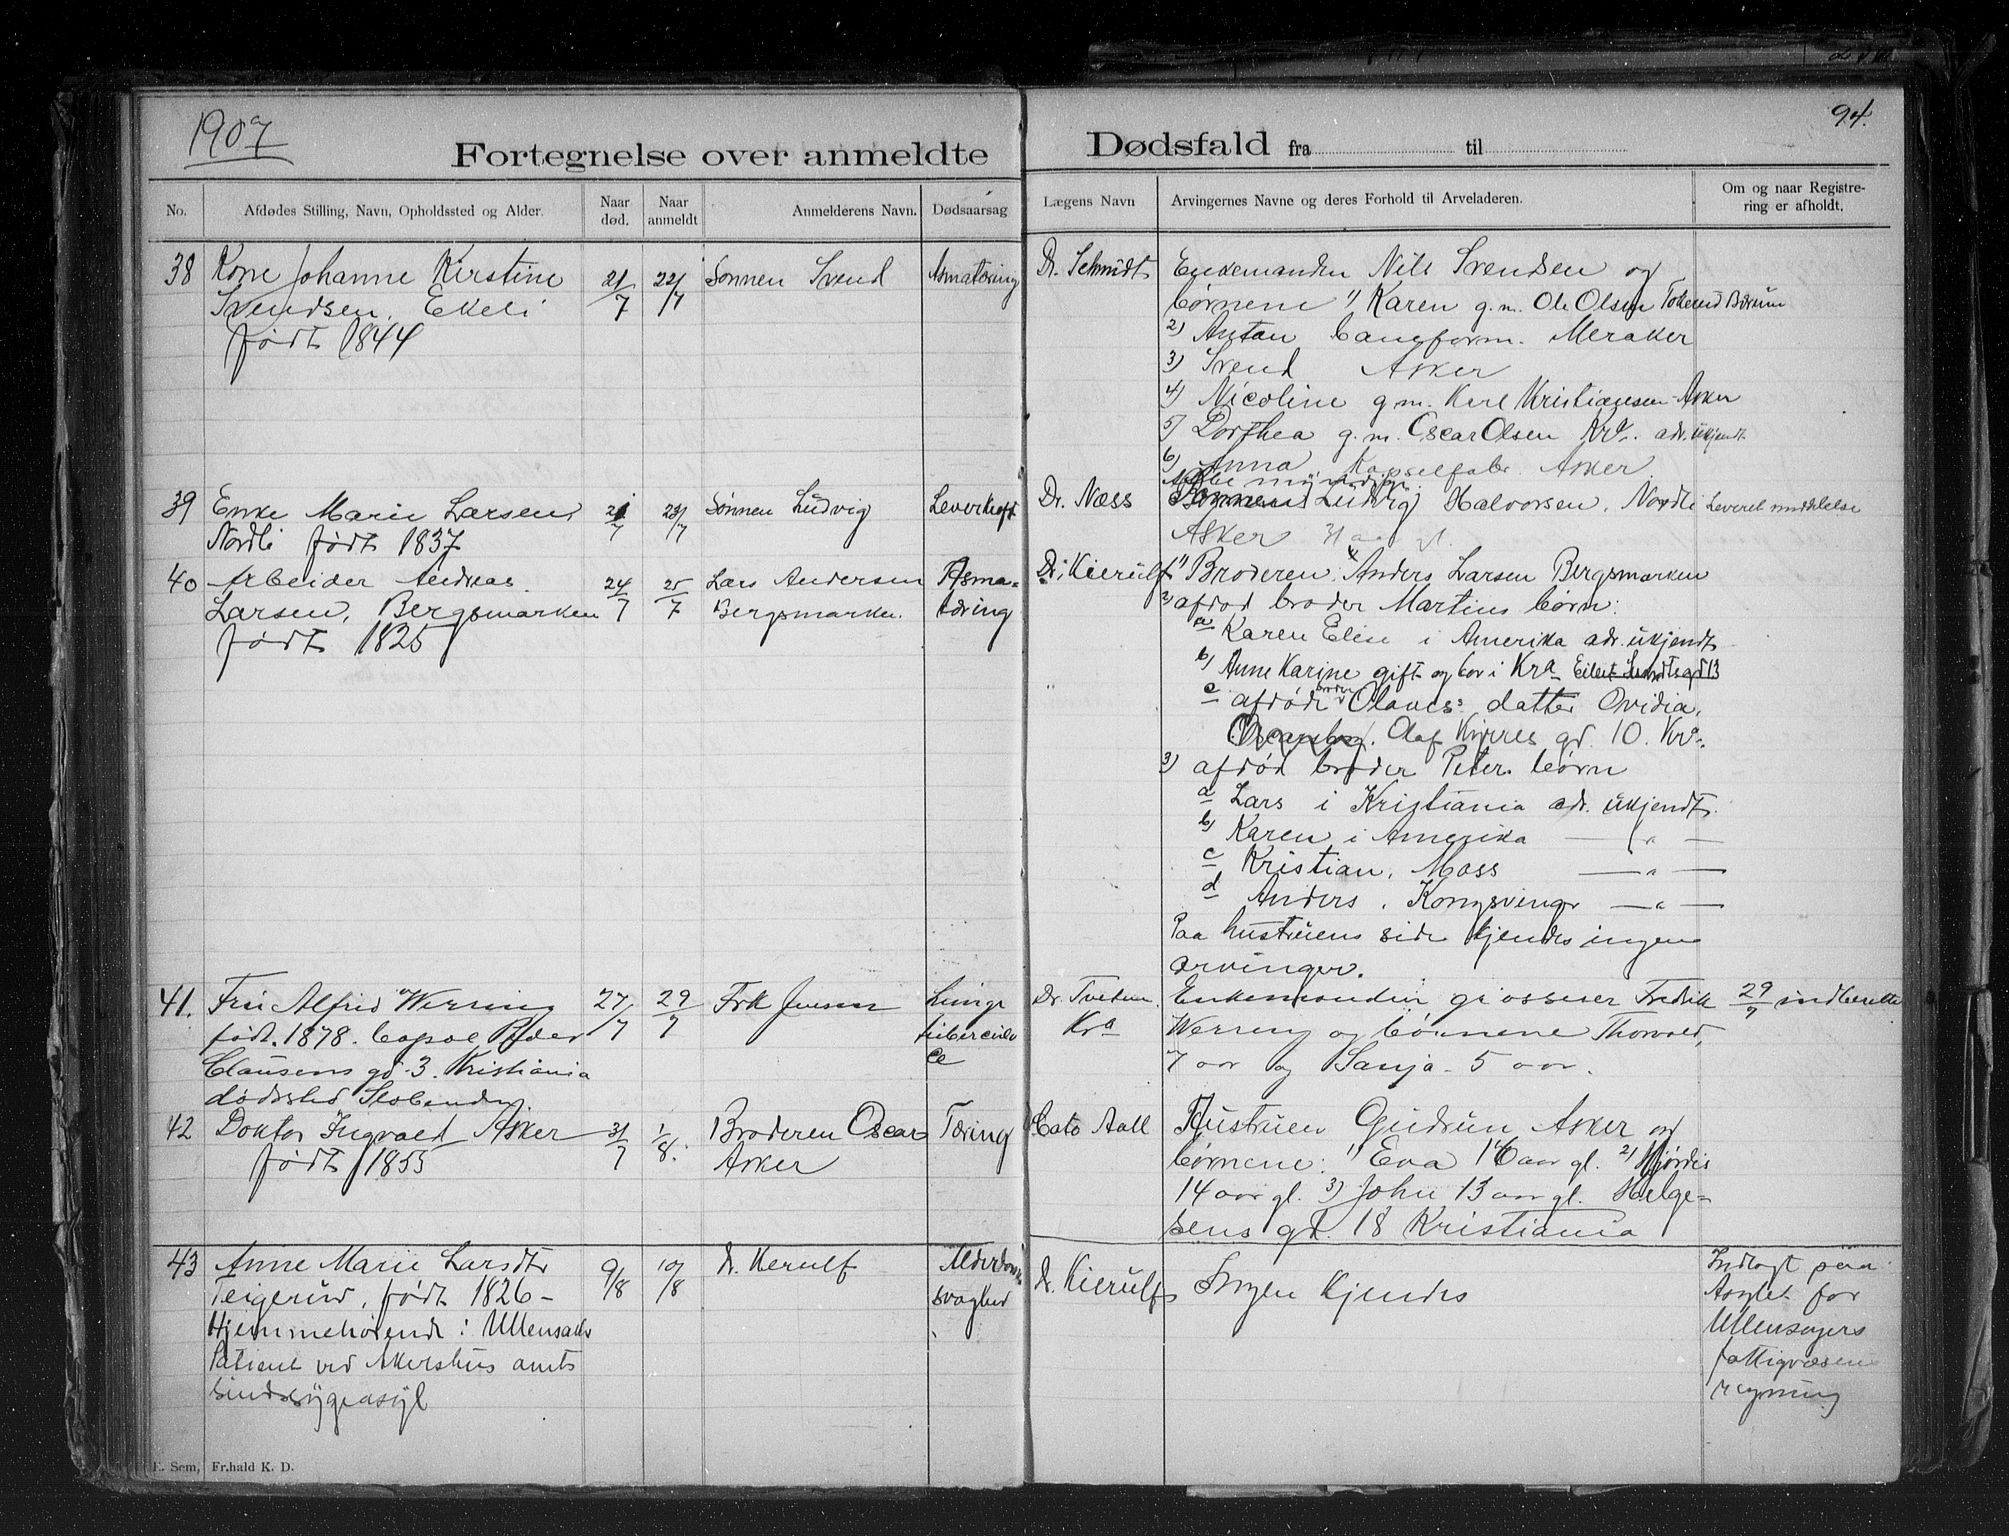 1907
94.
Fortegnelse over anmeldte Dødsfald fra til
No.
Afdødes Stilling, Navn, Opholdssted og Alder.
Naar død.
Naar anmeldt
Anmelderens Navn.
Dødsaarsag
Lægens Navn
Arvingernes Navne og deres Forhold til Arveladeren.
Om og naar Registrering er afholdt.
38 Kone Johanne Kirstine
Svendsen, Ekeli
født 1844
21/7
22/7
Sønnen Svend
Dr. Schmidt
Enkemanden Nils Svendsen og
børnene 1) Karen g.m. Ole Olsen Tokerud Bærum
2) Anton Meraker
3) Svend Asker
4) Nicoline g.m. Karl Kristiansen Asker
5) Dorthea g.m. Oscar Olsen Kra. adr. ukjendt
6) Anna Kapselfabr. Asker
Alle myndige
39 Enke Marie Larsen,
Nordli født 1837
Sønnen Ludvig
Leverkræft
Dr. Næss
Sønnen Ludvig Halvorsen, Nordli
Asker
40 Arbeider Andreas
Larsen, Bergsmarken
født 1825
24/7
25/7
Lars Andersen
Bergsmarken.
Asma-
tæring
Dr. Kierulf
1) Broderen Anders Larsen Bergsmarken
2) afdød broder Martins børn:
a Karen Elise i Amerika adr. ukjendt
b) Anne Karine gift og bor i Kra Eilert Sundts gd 13
c afdøde broder Olaves: datter Ovidia,
Olaf Kyrres gd. 10. Kra.
3) afdød broder Peters børn
a Lars i Kristiania adr. ukjendt.
b) Karen i Amerika — " —
c Kristian, Moss — " —
d Anders, Kongsvinger — " —
Paa hustruens side kjendes ingen
arvinger.
41. Fru Alfrid Werring
født 1878. Peder
Clausens gd. 3. Kristiania
dødssted Slobenden
27/7
29/7
Frk Jensen
Lunge
tuberculo
Dr. Tvedten
Kra
Enkemanden grosserer Fredrik
Werring og børnene Thorvald,
7 aar og Sanja - 5 aar.
29/7 indberettet
42 Doktor Ingvald Asker
født 1855
31/7
1/8.
Broderen Oscar
Asker
Tæring
Cato Aall
Hustruen Gudrun Asker og
børnene: 1) Eva 16 aar gl. 2) Hjørdis
14 aar gl. 3) John 13 aar gl. Helge-
sens gd. 18 Kristiania
43 Anne Marie Larsdtr
Teigerud, født 1826 -
Hjemmehørende i Ullensaker
Patient ved Akershus amts
Sindssygeasyl
9/8
10/8
Dr. Kierulf
Alderdoms
svaghed
Dr. Kierulf
Ingen kjendes
Indlagt paa
Asylet for
Ullensagers
fattigvæsens
regning
E. Sem, Fr.hald K. D.